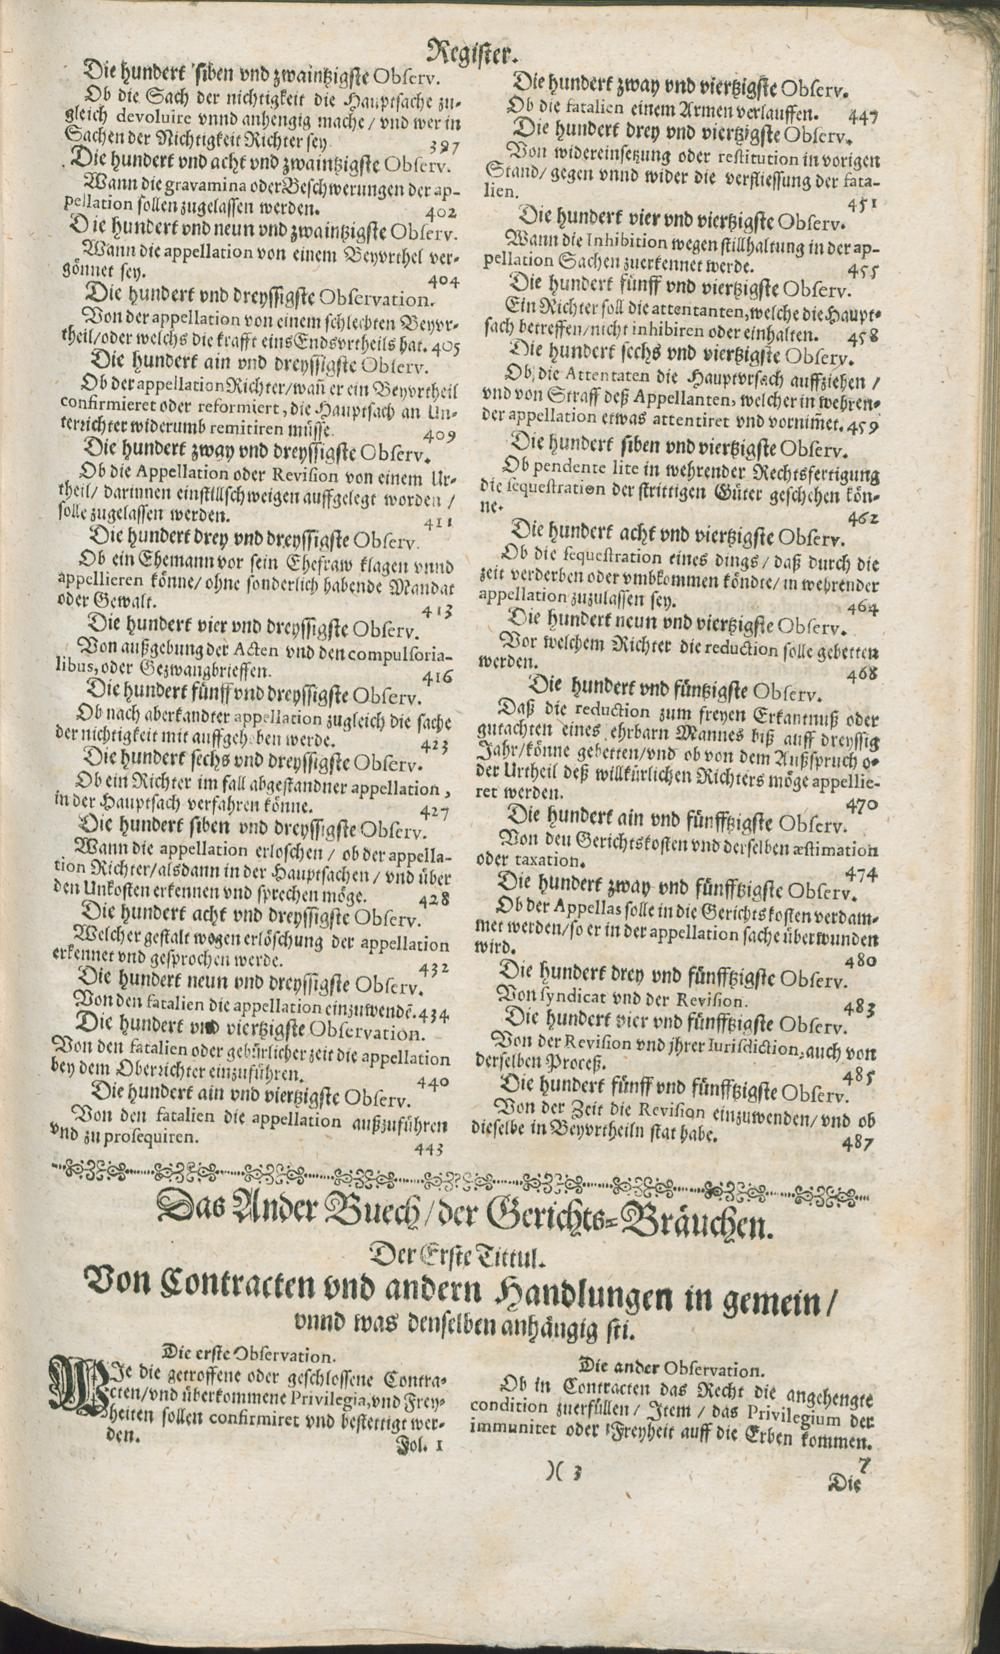 Register.
Die hundert siben vnd zwaintzigste Observ.
Ob die Sach der nichtigkeit die Hauptsache zu-
gleich devoluire vnnd anhengig mache / vnd wer in
Sachen der Nichtigkeit Richter sey. 397
Die hundert vnd acht vnd zwaintzigste Observ.
Wann die gravamina oder Beschwerungen der ap-
pellation sollen zugelassen werden. 402
Die hundert vnd neun vnd zwaintzigste Observ.
Wann die appellation von einem Beyvrthel ver-
gönnet sey. 404
Die hundert vnd dreyssigste Observation.
Von der appellation von einem schlechten Beyvr-
theil/oder welchs die krafft eins Endsvrtheils hat. 405
Die hundert ain vnd dreyssigste Observ.
Ob der appellation Richter/wañ er ein Beyvrtheil
confirmieret oder reformiert, die Hauptsach an Un-
terrichter widerumb remitiren müsse. 409
Die hundert zway vnd dreyssigste Observ.
Ob die Appellation oder Revision von einem Ur-
theil/ darinnen einstillschweigen auffgelegt worden /
solle zugelassen werden. 411
Die hundert drey vnd dreyssigste Observ.
Ob ein Ehemann vor sein Ehefraw klagen vnnd
appellieren könne/ ohne sonderlich habende Mandat
oder Gewalt. 413
Die hundert vier vnd dreyssigste Observ.
Von außgebung der Acten vnd den compulsoria-
libus, oder Gezwangbrieffen. 416
Die hundert fünff vnd dreyssigste Observ.
Ob nach aberkandter appellation zugleich die sache
der nichtigkeit mit auffgehoben werde. 423
Die hundert sechs vnd dreyssigste Observ.
Ob ein Richter im fall abgestandner appellation,
in der Hauptsach verfahren könne. 427
Die hundert siben vnd dreyssigste Observ.
Wann die appellation erloschen / ob der appella-
tion Richter/alsdann in der Hauptsachen / vnd über
den Unkosten erkennen vnd sprechen möge. 428
Die hundert acht vnd dreyssigste Observ.
Welcher gestalt wegen erlöschung der appellation
erkennet vnd gesprochen werde. 432
Die hundert neun vnd dreyssigste Observ.
Von den fatalien die appellation einzuwendē. 434
Die hundert vnd viertzigste Observation.
Von den fatalien oder gebürlicher zeit die appellation
bey dem Oberrichter einzuführen. 440
Die hundert ain vnd viertzigste Observ.
Von den fatalien die appellation außzuführen
vnd zu prosequiren. 443
Die hundert zway vnd viertzigste Observ.
Ob die fatalien einem Armen verlauffen. 447
Die hundert drey vnd viertzigste Observ.
Von widereinsetzung oder restitution in vorigen
Stand/ gegen vnnd wider die verfliessung der fata-
lien. 451
Die hundert vier vnd viertzigste Observ.
Wann die Inhibition wegen stillhaltung in der ap-
pellation Sachen zuerkennet werde. 455
Die hundert fünff vnd viertzigste Observ.
Ein Richter soll die attentanten, welche die Haupt-
sach betreffen/nicht inhibiren oder einhalten. 458
Die hundert sechs vnd viertzigste Observ.
Ob die Attentaten die Hauptvrsach auffziehen /
vnd von Straff deß Appellanten, welcher in wehren-
der appellation etwas attentiret vnd vornim̃et. 459
Die hundert siben vnd viertzigste Observ.
Ob pendente lite in wehrender Rechtsfertigung
die sequestration der strittigen Güter geschehen kön-
ne. 462
Die hundert acht vnd viertzigste Observ.
Ob die sequestration eines dings / daß durch die
zeit verderben oder vmbkommen köndte/ in wehrender
appellation zuzulassen sey. 464
Die hundert neun vnd viertzigste Observ.
Vor welchem Richter die reduction solle gebetten
werden. 468
Die hundert vnd füntzigste Observ.
Daß die reduction zum freyen Erkantnuß oder
gutachten eines ehrbarn Mannes biß auff dreyssig
Jahr/könne gebetten/vnd ob von dem Außspruch o-
der Urtheil deß willkürlichen Richters möge appellie-
ret werden. 470
Die hundert ain vnd fünfftzigste Observ.
Von den Gerichtskosten vnd derselben æstimation
oder taxation. 474
Die hundert zway vnd fünfftzigste Observ.
Ob der Appellas solle in die Gerichtskosten verdam-
met werden/so er in der appellation sache überwunden
wird. 480
Die hundert drey vnd fünfftzigste Observ.
Von syndicat vnd der Revision. 483
Die hundert vier vnd fünfftzigste Observ.
Von der Revision vnd jhrer Iurisdiction, auch von
derselben Proceß. 485
Die hundert fünff vnd fünfftzigste Observ.
Von der Zeit die Revision einzuwenden/ vnd ob
dieselbe in Beyvrtheiln stat habe. 487
Das Ander Buech / der Gerichts-Bräuchen.
Der Erste Tittul.
Von Contracten vnd andern Handlungen in gemein /
vnnd was denselben anhängig sei.
Die erste Observation.
WJe die getroffene oder geschlossene Contra-
cten/vnd überkommene Privilegia, vnd Frey-
heiten sollen confirmiret vnd bestettigt wer-
den. Fol. 1
Die ander Observation.
Ob in Contracten das Recht die angehengte
condition zuerfüllen / Item / das Privilegium der
immunitet oder Freyheit auff die Erben kommen.
7
)( 3
Die